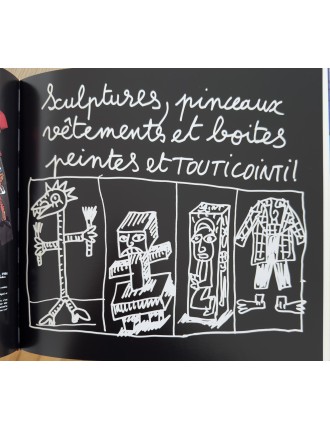 Sculptures, pinceaux
vêtements et boites
peintes et TOUTICOINTI